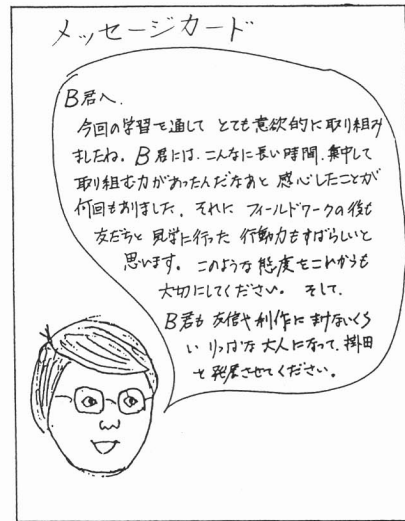 メッセージカード
B君へ、
今回の学習を通して とても意欲的に取り組み
ましたね。B君には、こんなに長い時間、集中して
取り組む力があったんだなあと 感心したことが
何回もありました。それに フィールドワークの後も
友だちと 見学に行った 行動力もすばらしいと
思います。このような 態度をこれからも
大切にしてください。そして、
B君も 友信や利作に まけないくら
い りっぱな 大人になって、掛田
を 発展させてください。